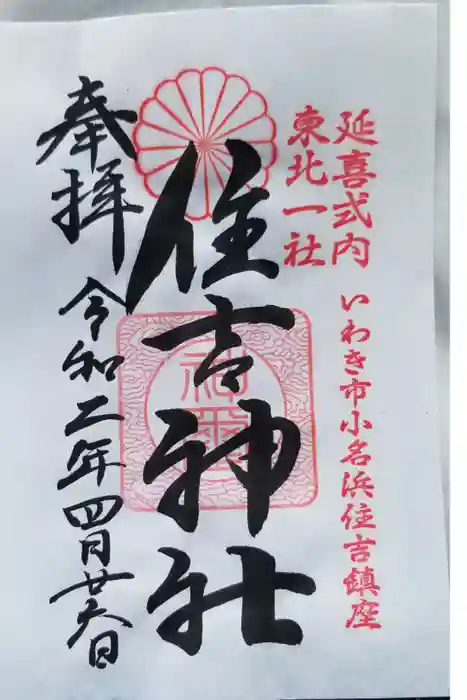 延喜式内
東北一社
いわき市小名浜住吉鎮座
住吉神社
神璽
奉拝
令和二年四月廿六日